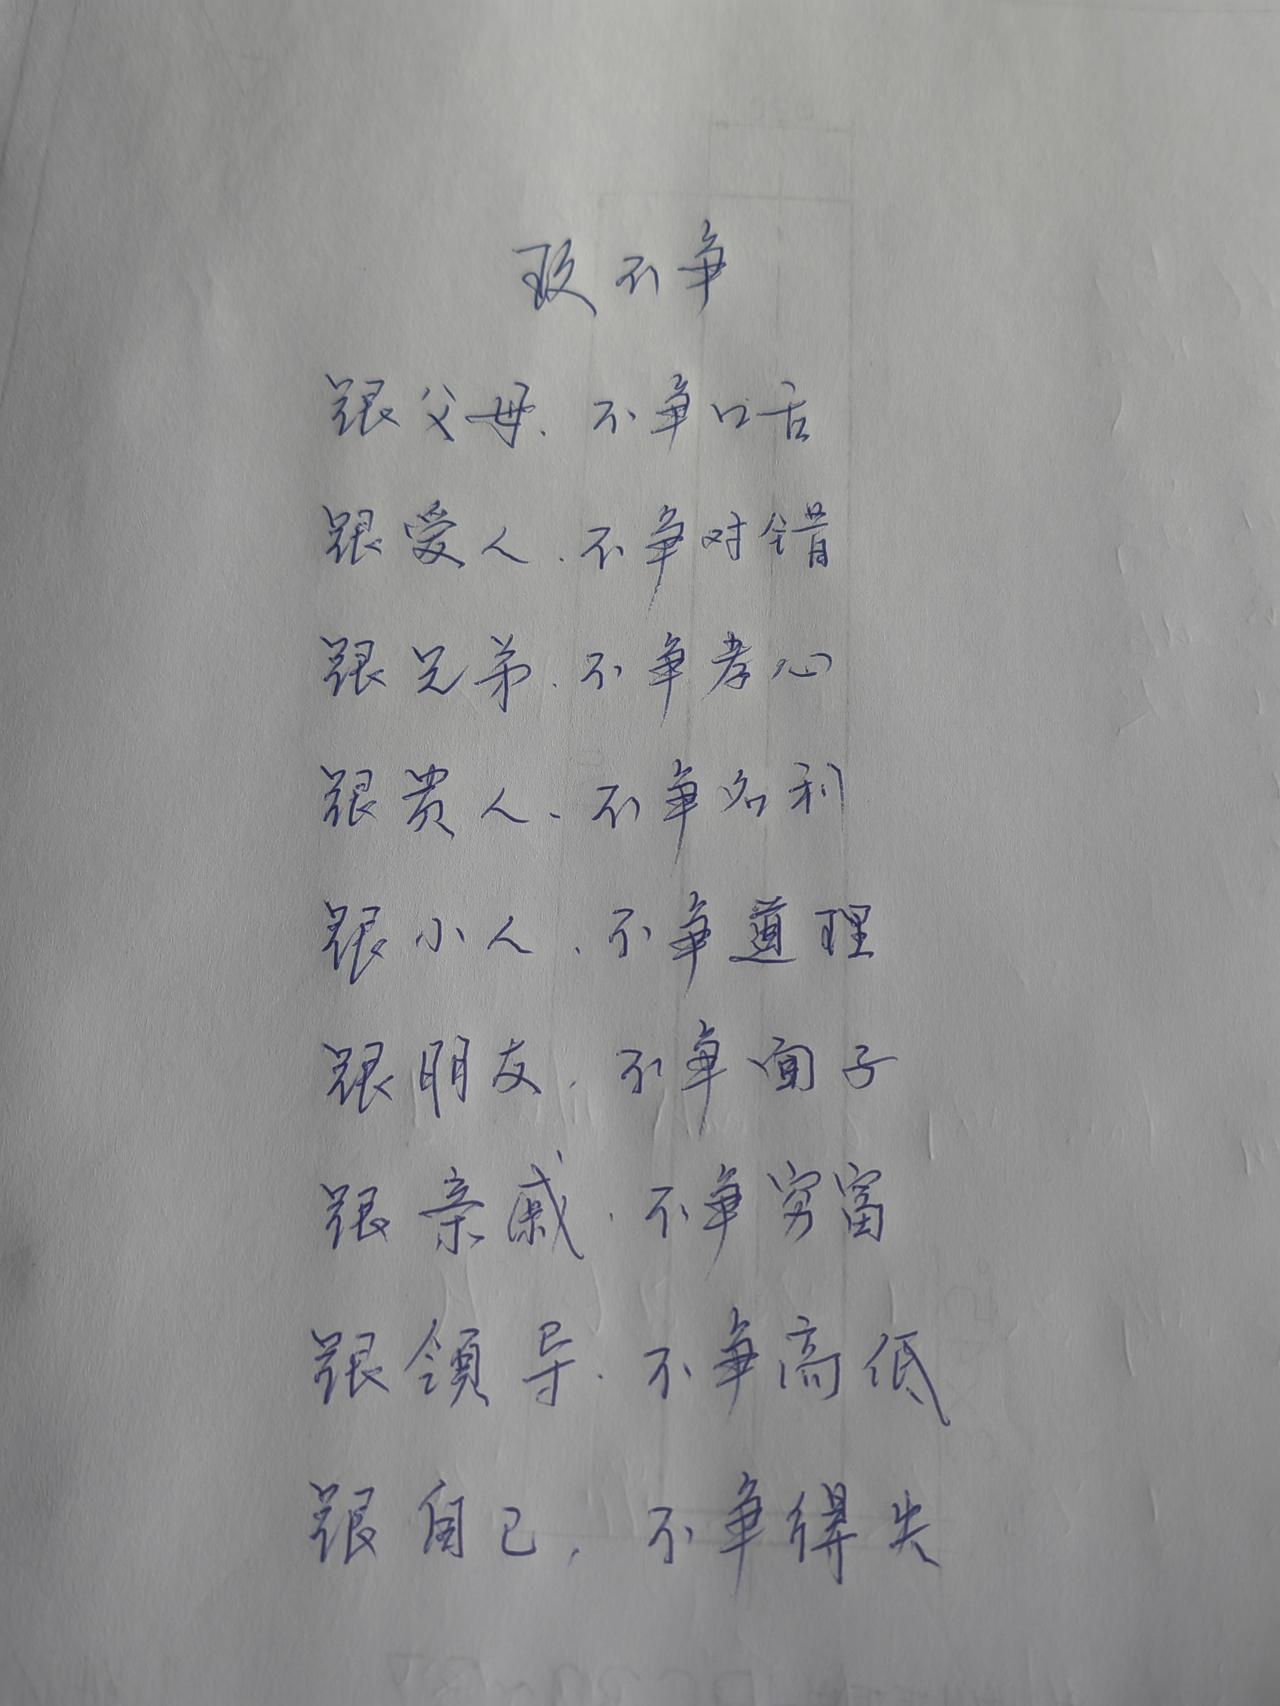 玖不争
跟父母、不争口舌
跟爱人、不争对错
跟兄弟、不争孝心
跟贵人、不争名利
跟小人、不争道理
跟朋友、不争面子
跟亲戚、不争穷富
跟領导、不争高低
跟自己、不争得失